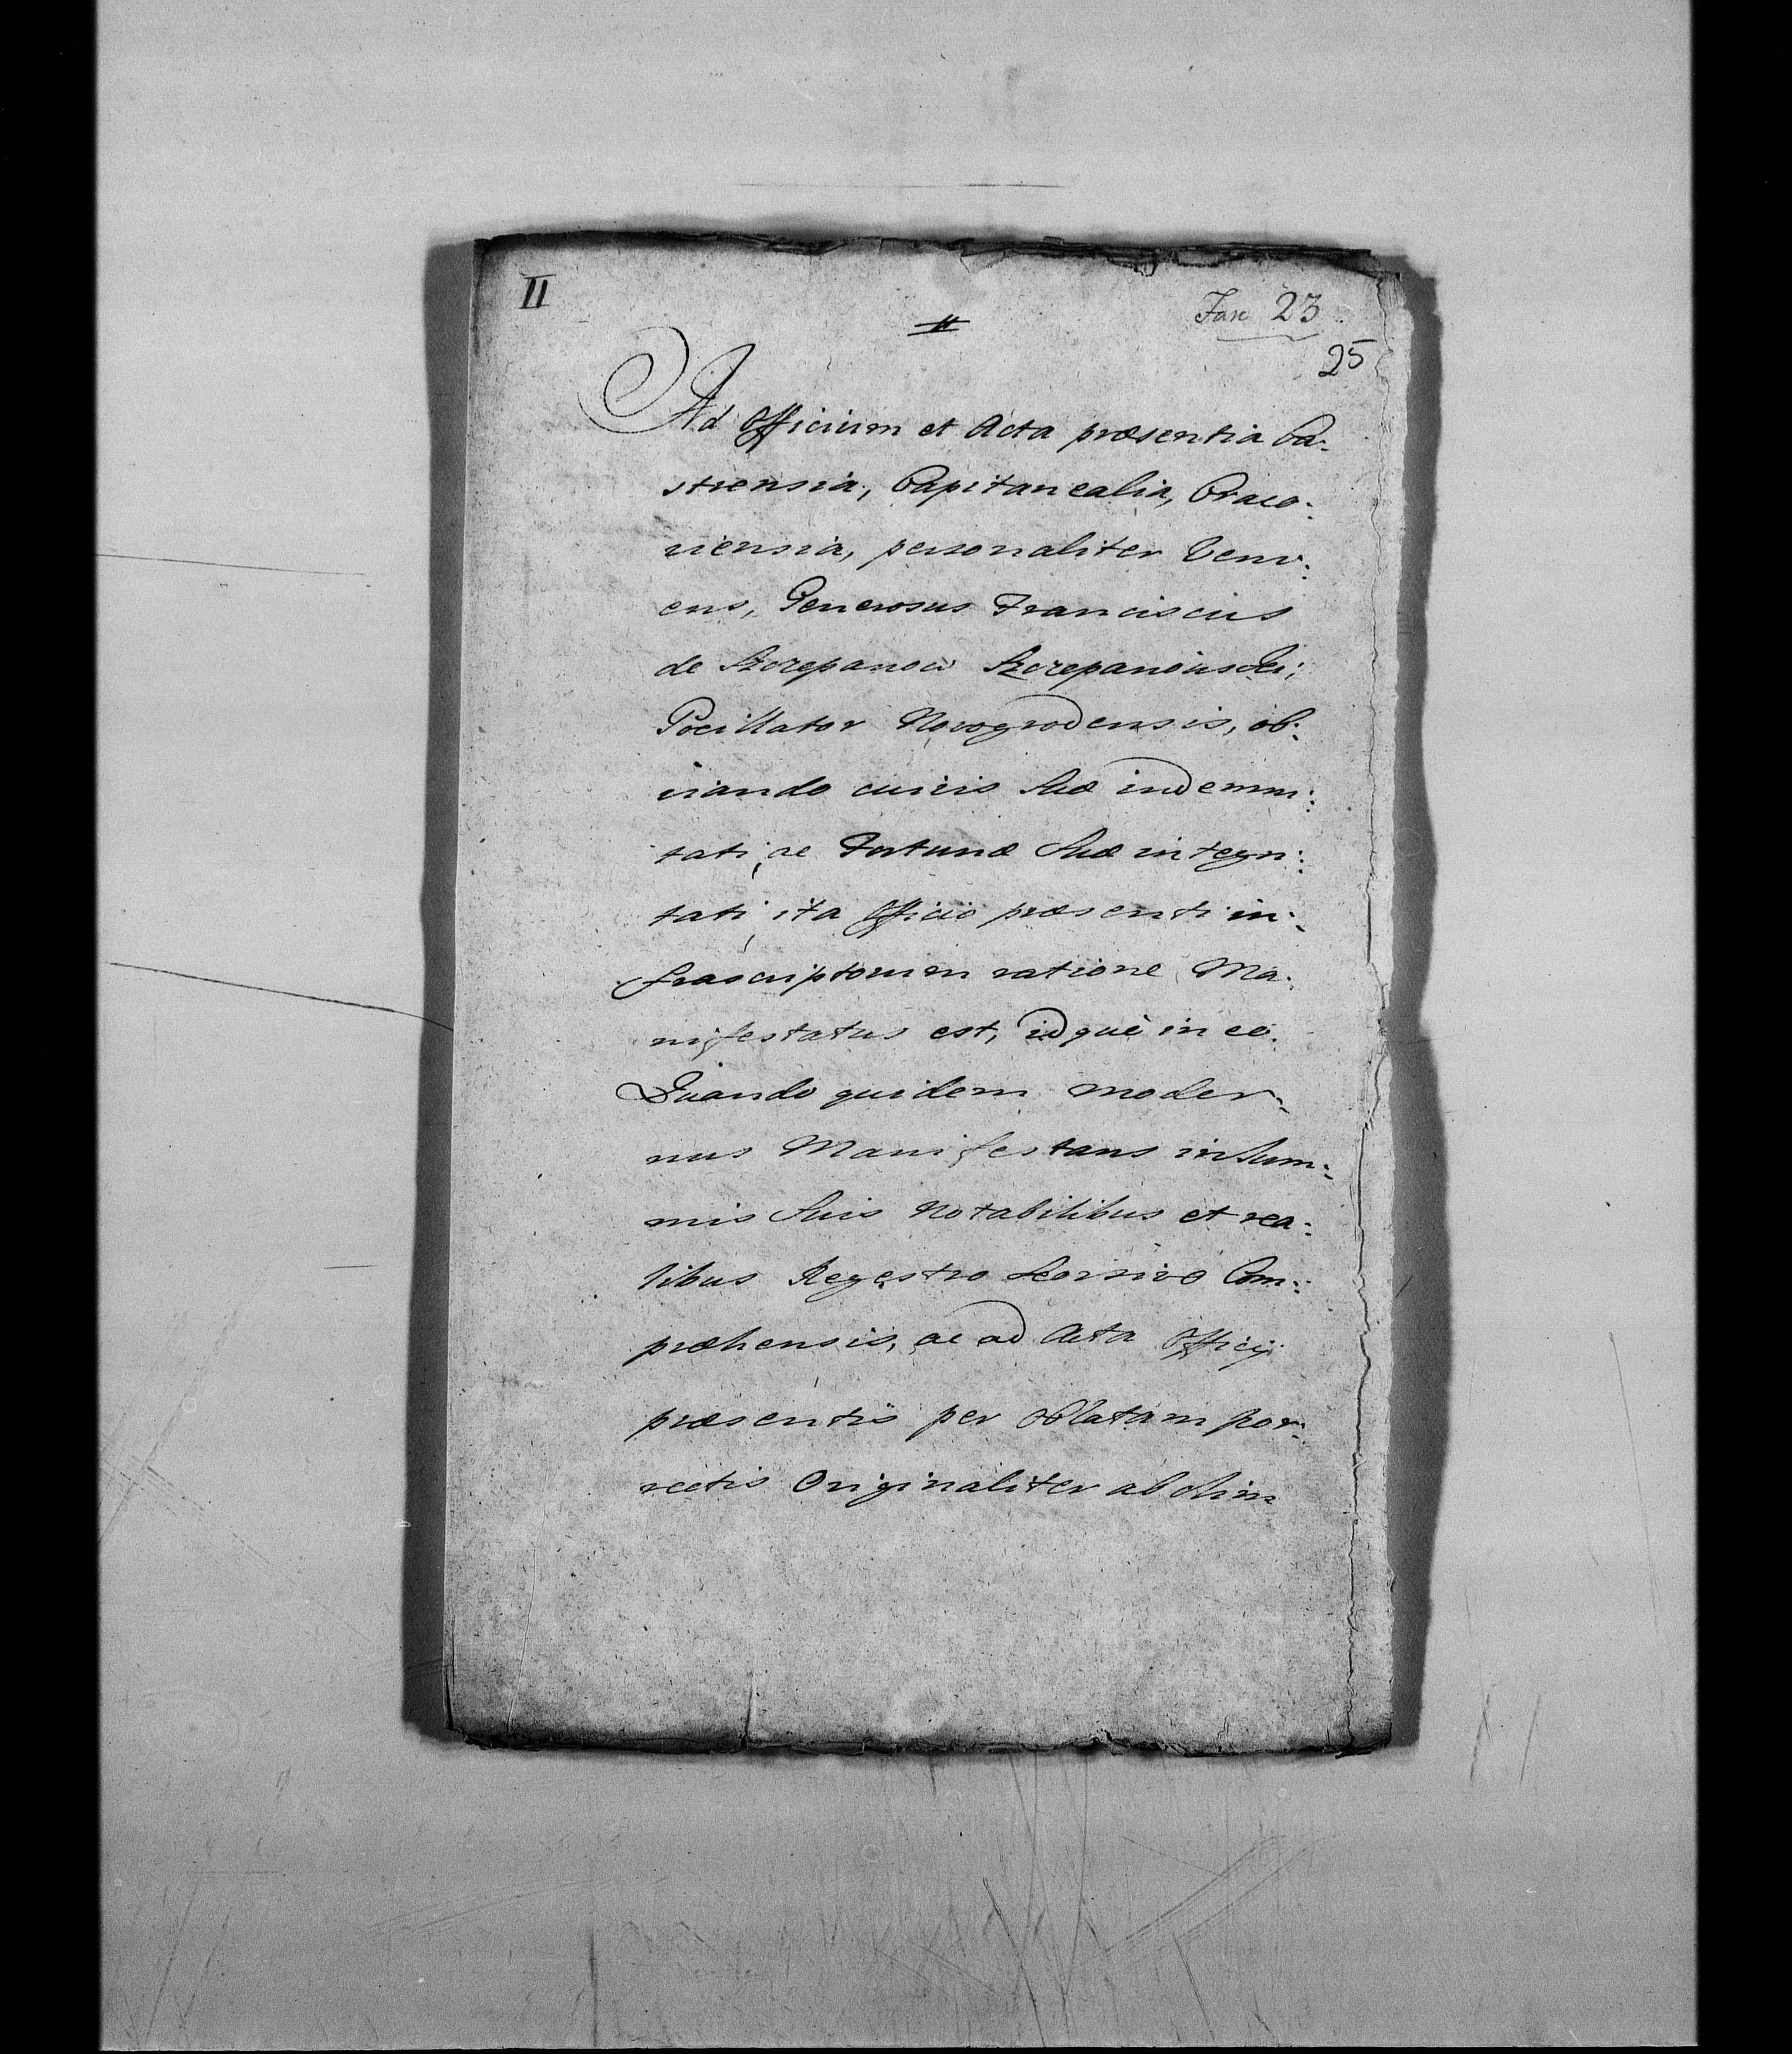 II
Fasc 23
25
Ad Officium et Acta præsentia Ca:
strensia, Capitanealia, Craco:
viensia, personaliter Veni:
ens, Generosus Franciscus
de Szczepanow Szczepanowski;
Pocillator Novogrodensis, ob:
viando cuivis Suæ indemni:
tati, ac Fortunæ Suæ integri:
tati, ita Officio præsenti in:
frascriptorum ratione Ma:
nifestatus est, idque in eo.
Quando quidem moder:
nus Manifestans in Sum:
mis Suis Notabilibus et rea:
libus Regestro Seorsivo Com:
præhensis, ac ad Acta Officij
præsentis per Oblatam por:
rectis Originaliter ab olim